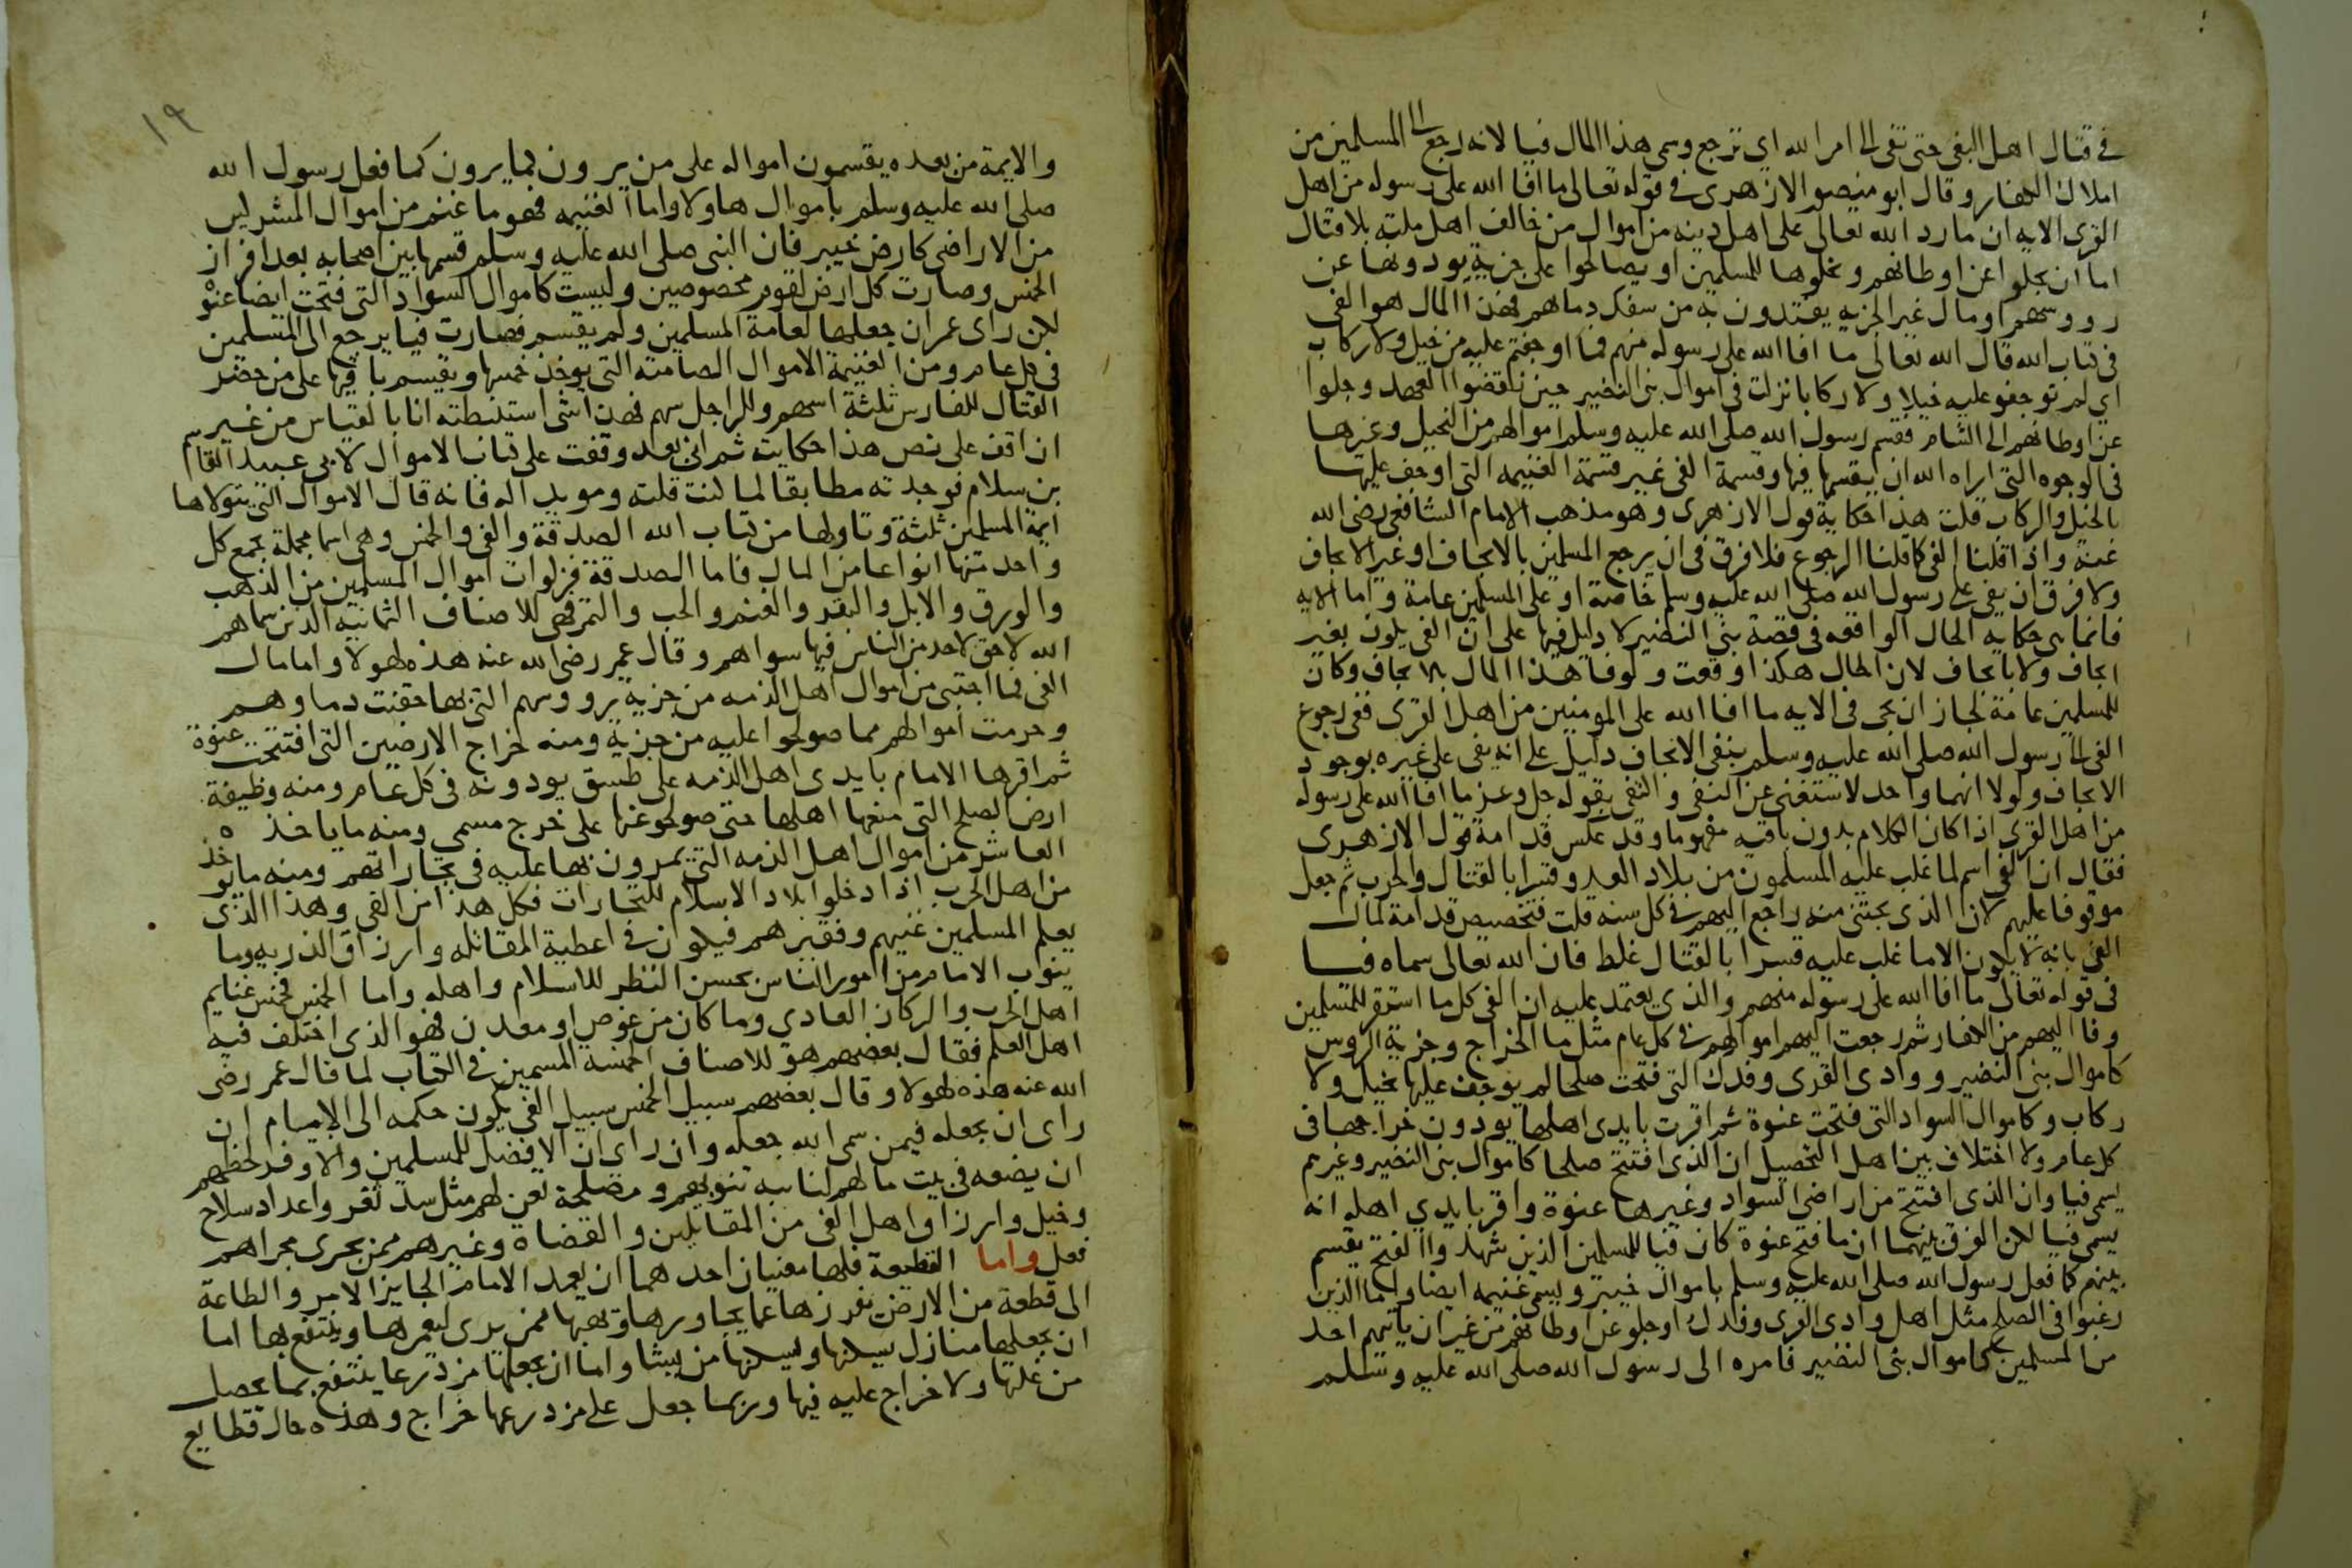 في قتال اهل البغى حتى تفى الى امر الله اي ترجع وسمى هذا المال فيا لانه رجع الى المسلمين من
املاك الكفار وقال ابو منصور الازهرى في قوله تعالى ما افا الله على رسوله من اهل
القرى الايه ان ما رد الله تعالى على اهل دينه من اموال من خالف اهل ملته بلا قتال
اما ان يجلوا عن اوطانهم ويخلوها للمسلمين او يصالحوا على جزية يودونها عن
رووسهم او مال غير الجزيه يفتدون به من سفك دماهم فهذا المال هو الفى
فى كتاب الله قال الله تعالى ما افا الله على رسوله منهم فما اوجفتم عليه من خيل ولا ركاب
اي لم توجفو عليه خيلا ولا ركابا نزلت فى اموال بنى النضير حين نقضوا العهد وجلوا
عن اوطانهم الى الشام فقسم رسول الله صلى الله عليه وسلم اموالهم من النخيل وغيرها
فى الوجوه التى اراه الله ان يقسمها فيها وقسمة الفى غير قسمة الغنيمه التى اوجف عليها
بالخيل والركاب قلت هذا حكاية قول الازهرى وهو مذهب الامام الشافعى رضى الله
عنه واذا قلنا الفى كما قلنا الرجوع فلا فرق فى ان يرجع المسلمين بالايجاف او غير الايجاف
ولا فرق ان يفى على رسول الله صلى الله عليه وسلم خاصة او على المسلمين عامة واما الايه
فانما هى حكايه الحال الواقعه فى قصة بني النضير لا دليل فيها على ان الفى يكون بغير
ايجاف ولا بايجاف لان الحال هكذا وقعت ولو فا هذا المال بلا يجاف وكان
للمسلمين عامة لجاز ان يجى فى الايه ما افا الله على المومنين من اهل القرى ففى رجوع
الفى الى رسول الله صلى الله عليه وسلم بنفى الايجاف دليل على انه يفى على غيره بوجود
الايجاف ولولا انهما واحد لاستغنى عن النفى والتفى بقوله جل وعز ما افا الله على رسوله
من اهل القرى اذا كان الكلام بدون باقيه مفهوما وقد عكس قدامة قول الازهرى
فقال ان الفى اسم لما غلب عليه المسلمون من بلاد العدو قسرا بالقتال والحرب ثم جعل
موقوفا عليهم لان الذى يجتنى منه راجع اليهم في كل سنه قلت فتخصيص قدامة لمال
الفى بانه لا يكون الا ما غلب عليه قسرا بالقتال غلط فان الله تعالى سماه فيا
فى قوله تعالى ما افا الله على رسوله منهم والذي يعتمد عليه ان الفى كل ما استقر للمسلمين
وفا اليهم من الكفار ثم رجعت اليهم اموالهم في كل عام مثل ما الخراج وجزية الروس
كاموال بنى النضير ووادى القرى وفدك التى فتحت صلحا لم يوجف عليها بخيل ولا
ركاب وكاموال السواد التى فتحت عنوة ثم اقرت بايدى اهلها يودون خراجها فى
كل عام ولا اختلاف بين اهل التحصيل ان الذى افتتح صلحا كاموال بنى النضير وغيرهم
يسمى فيا وان الذى افتتح من اراضى السواد وغيرها عنوة واقر بايدي اهله انه
يسمى فيا لكن الفرق بينهما ان ما فتح عنوة كان فيا للمسلمين الذين شهدوا الفتح يقسم
بينهم كما فعل رسول الله صلى الله عليه وسلم باموال خيبر ويسمى غنيمه ايضا واما الذين
رغبوا فى الصلح مثل اهل وادى القرى وفدك او جلو عن اوطانهم من غير ان ياتيهم احد
من المسلمين كاموال بنى النضير فامره الى رسول الله صلى الله عليه وسلم
١٩
والايمة من بعده يقسمون امواله على من يرون كما يرون كما فعل رسول الله
صلى الله عليه وسلم باموال هاولا واما الغنيمه فهو ما غنم من اموال المشركين
من الاراضى كارض خيبر فان النبى صلى الله عليه وسلم قسمها بين اصحابه بعد افراز
الخمس وصارت كل ارض لقوم مخصوصين وليست كاموال السواد التى فتحت ايضا عنوة
لكن راى عمر ان جعلها لعامة المسلمين ولم يقسم فصارت فيا يرجع الى المسلمين
فى كل عام ومن الغنيمة الاموال الصامتة التى يوخذ خمسها ويقسم باقيها على من حضر
القتال للفارس ثلثة اسهم وللراجل سهم فهذا شى استنبطته انا بالقياس من غير
ان اقف على نص هذا حكايته ثم انى بعد وقفت على كتاب الاموال لابى عبيد القاسم
بن سلام فوجدته مطابقا لما كنت قلته ومويدا له فانه قال الاموال التى يتولاها
ايمة المسلمين ثلثة وتاولها من كتاب الله الصدقة والفى والخمس وهى اسما مجملة يجمع كل
واحد منها انواعا من المال فاما الصدقة فزكوات اموال المسلمين من الذهب
والورق والابل والبقر والغنم والحب والتمر فهى للاصناف الثمانيه الذين سماهم
الله لا حق لاحد من الناس فيها سواهم وقال عمر رضى الله عنه هذه لهولا واما مال
الفى فما اجتبى من اموال اهل الذمه من جزية رووسهم التى بها حقنت دماوهم
وحرمت اموالهم مما صولحوا عليه من جزية ومنه خراج الارضين التى افتتحت عنوة
ثم اقرها الامام بايدى اهل الذمه على طسق يودونه فى كل عام ومنه وظيفة
ارض الصلح التى منعها اهلها حتى صولحو عنها على خرج مسمى ومنه ما ياخذه
العاشر من اموال اهل الذمه التى يمرون بها عليه فى تجاراتهم ومنه ما يوخذ
من اهل الحرب اذا دخلوا بلاد الاسلام للتجارات فكل هذا من الفى وهذا الذى
يعلم المسلمين غنيهم وفقيرهم فيكون في اعطية المقاتله وارزاق الذريه وما
ينوب الامام من امور الناس بحسن النظر للاسلام واهله واما الخمس فخمس غنايم
اهل الحرب والركاز العادي وما كان من غوص او معدن فهو الذى اختلف فيه
اهل العلم فقال بعضهم هو للاصناف الخمسه المسمين في الكتاب لما قال عمر رضى
الله عنه هذه لهولا وقال بعضهم سبيل الخمس سبيل الفى يكون حكمه الى الامام ان
راى ان يجعله فيمن سمى الله جعله وان راى ان الافضل للمسلمين والاوفر لحظهم
ان يضعه فى بيت مالهم لنايبه تنوبهم ومصلحة تعن لهم مثل سد ثغر واعداد سلاح
وخيل وارزاق اهل الفى من المقاتلين والقضاة وغيرهم ممن يجرى مجراهم
فعل واما القطيعة فلها معنيان احدهما ان يعمد الامام الجايز الامر والطاعة
الى قطعة من الارض يفرزها عما يجاورها ويهبها ممن يرى ليعمرها وينتفع بها اما
ان يجعلها منازل يسكنها ويسكنها من يشا واما ان يجعلها مزدرعا ينتفع بما يحصل
من غلتها ولا خراج عليه فيها وربما جعل على مزدرعها خراج وهذه حال قطايع